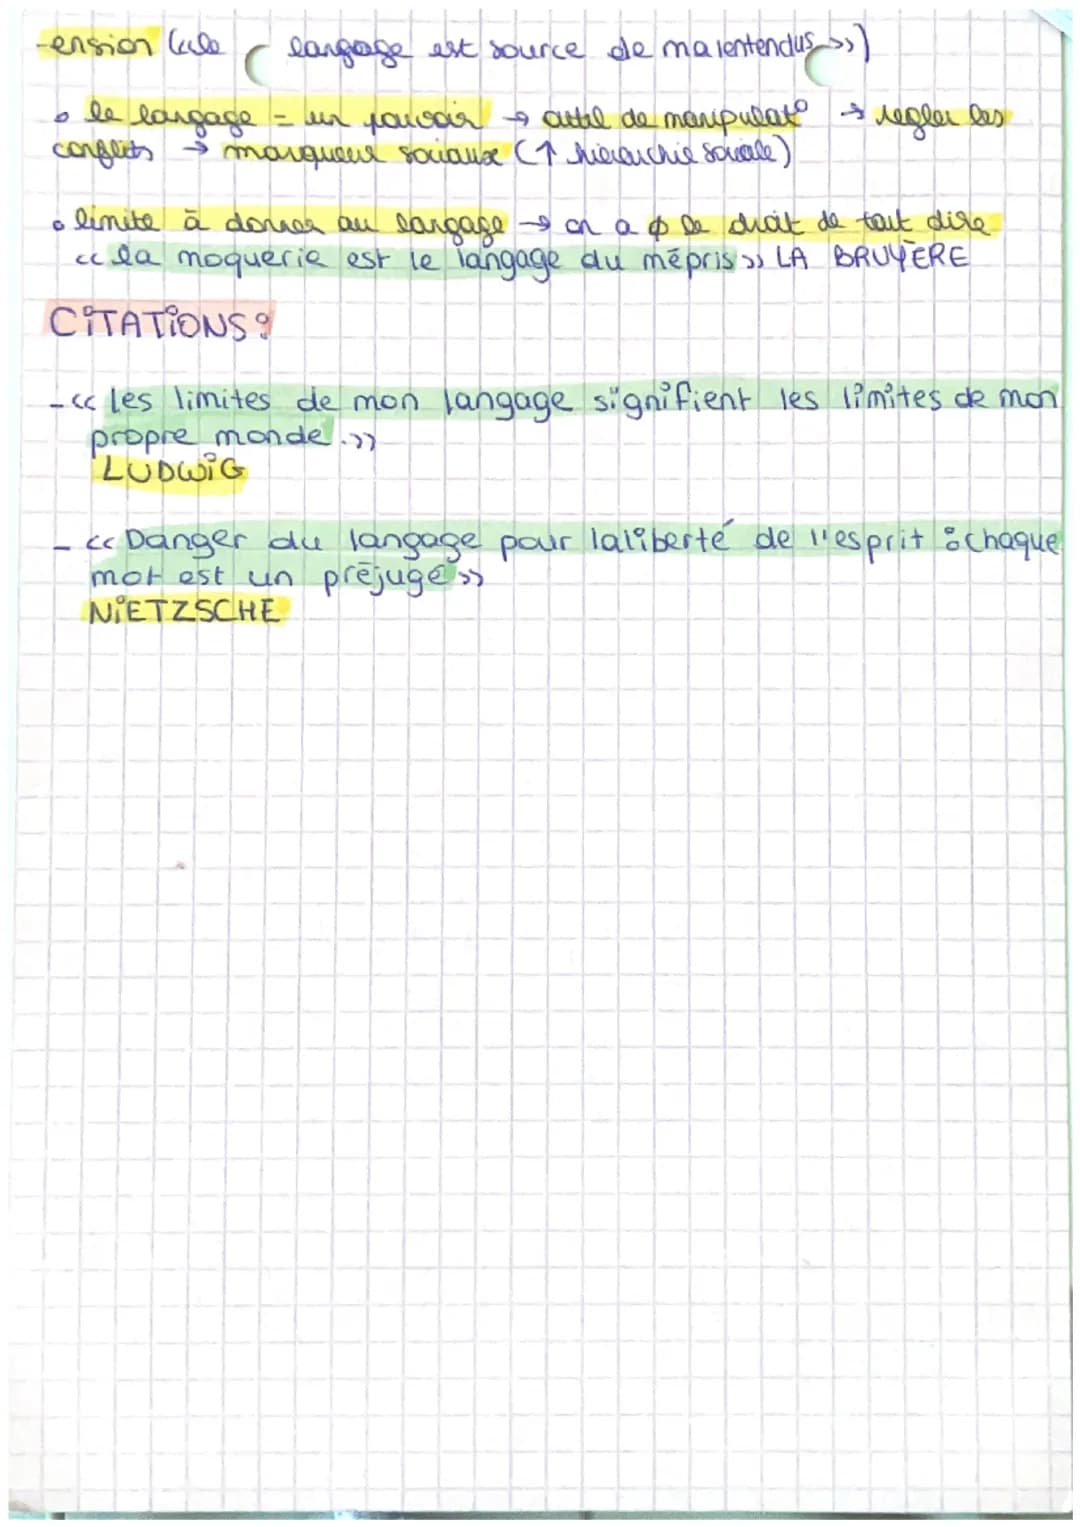 -ension («le langage est source de malentendus»)
• le langage = un pouvoir → outil de manipulat° → regler les
conflits → marqueur sociaux (↑ hierarchie sociale)
• limite à donner au langage → on a ∅ le droit de tout dire
«la moquerie est le langage du mépris» LA BRUYÈRE
CITATIONS :
- «les limites de mon langage signifient les limites de mon
propre monde.»
LUDWIG
- «Danger du langage pour la liberté de l'esprit : chaque
mot est un préjugé»
NIETZSCHE